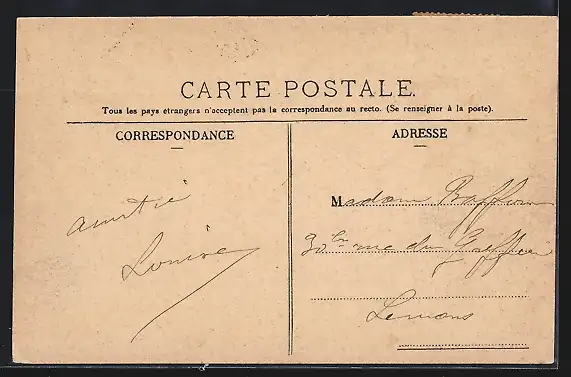 CARTE POSTALE.
Tous les pays étrangers n'acceptent pas la correspondance au recto. (Se renseigner à la poste).
CORRESPONDANCE
ADRESSE
Amitié
Louise
Madame
30 rue du Greffier
Lemans